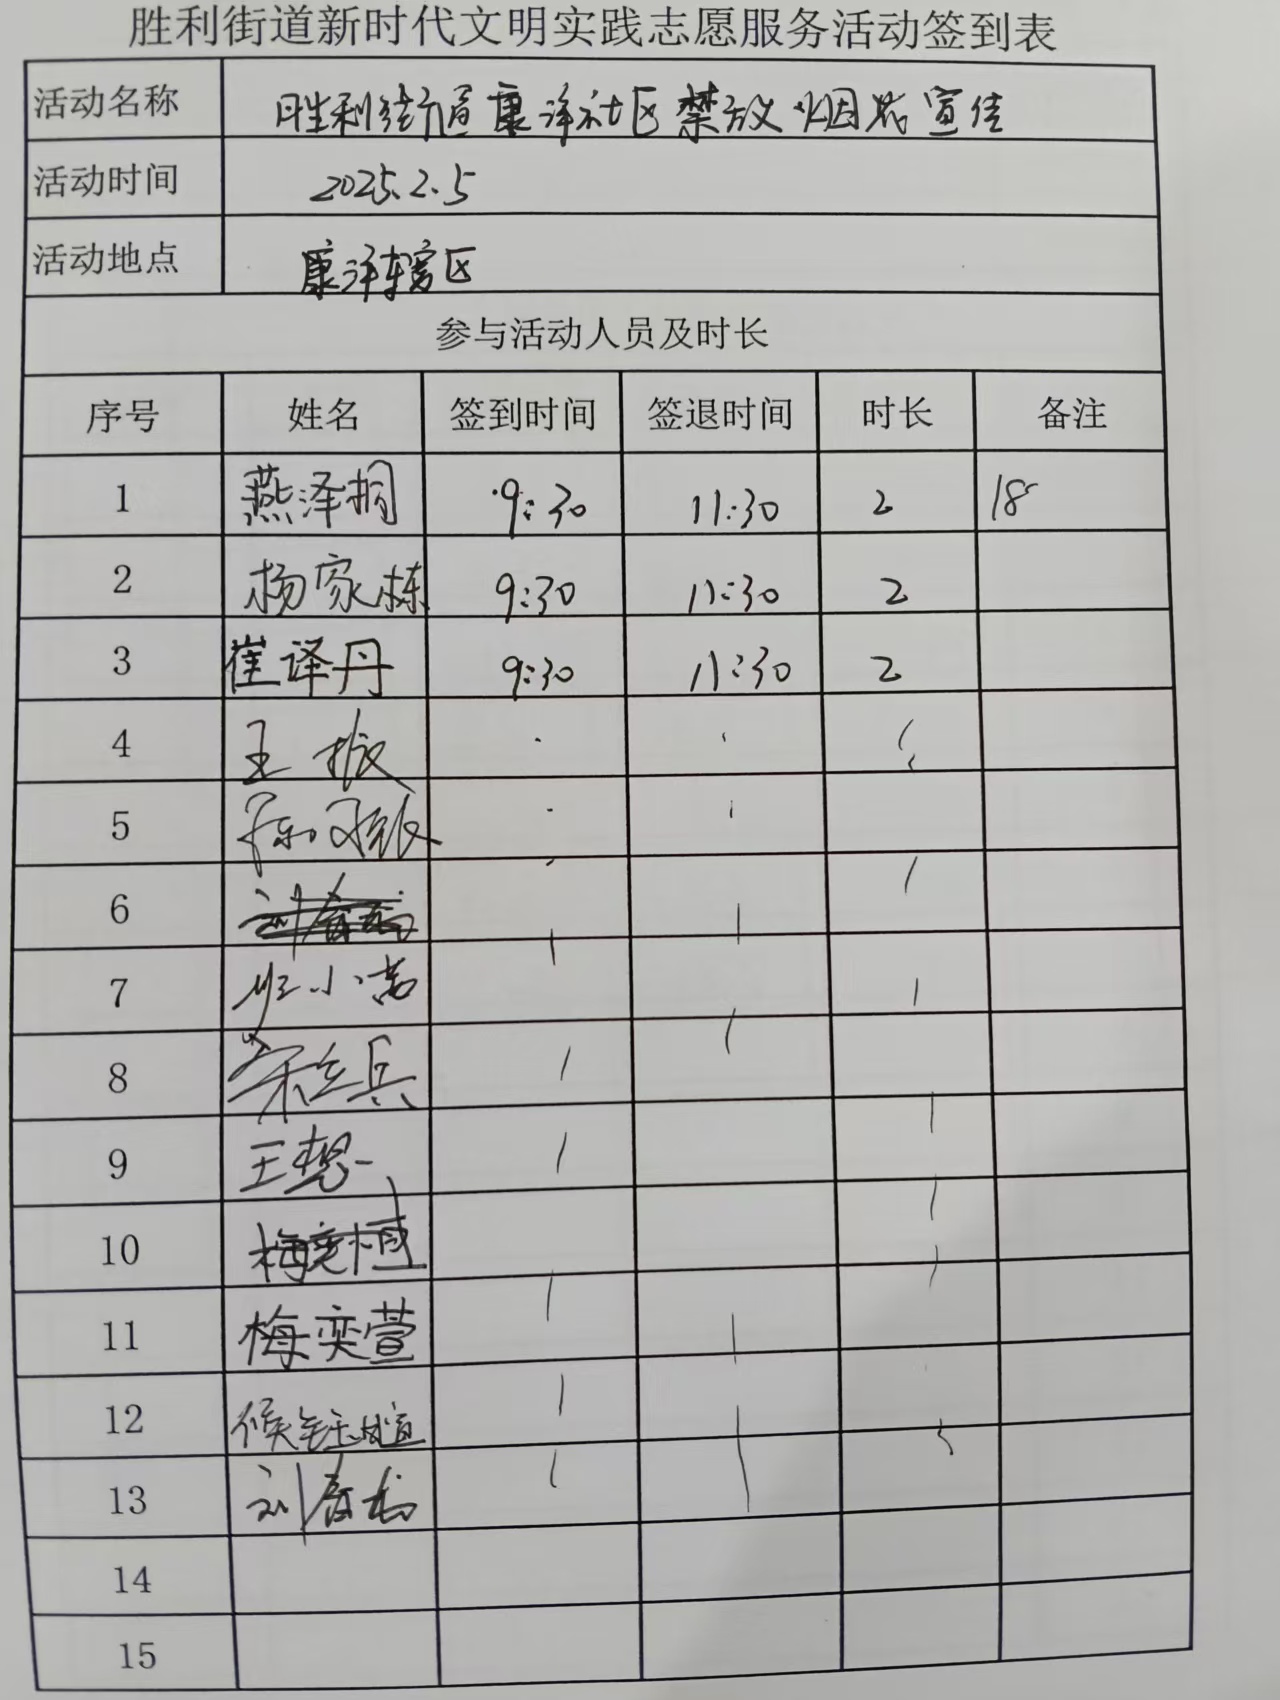 胜利街道新时代文明实践志愿服务活动签到表
活动名称 胜利街道康泽社区禁放烟花宣传
活动时间 2025.2.5
活动地点 康泽辖区
参与活动人员及时长
序号 姓名 签到时间 签退时间 时长 备注
1 燕泽桐 9:30 11:30 2 18
2 杨家栋 9:30 11:30 2
3 崔译丹 9:30 11:30 2
4 王振
5
6
7
8 宋立兵
9 王想
10
11 梅奕萱
12
13 刘春
14
15